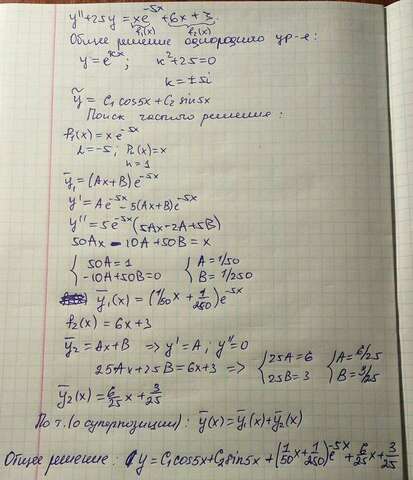 y''+25y = xe^{-5x} + 6x+3.
f₁(x) f₂(x)
Общее решение однородного ур-е:
y = e^{kx}; k²+25=0
k = ±5i
ỹ = C₁cos5x + C₂sin5x
Поиск частного решение:
f₁(x) = xe^{-5x}
λ=-5; P₂(x)=x
n=1
ȳ₁ = (Ax+B)e^{-5x}
y' = Ae^{-5x} - 5(Ax+B)e^{-5x}
y'' = 5e^{-5x}(5Ax-2A+5B)
50Ax - 10A+50B = x
{ 50A=1 { A=1/50
-10A+50B=0 B=1/250
ȳ₁(x) = (1/50 x + 1/250)e^{-5x}
f₂(x) = 6x+3
ȳ₂ = Ax+B ⇒ y'=A; y''=0
25Ax+25B = 6x+3 ⇒ { 25A=6 { A=6/25
25B=3 B=3/25
ȳ₂(x) = 6/25 x + 3/25
По т.(о суперпозиции): ȳ(x) = ȳ₁(x)+ȳ₂(x)
Общее решение: y = C₁cos5x + C₂sin5x + (1/50 x + 1/250)e^{-5x} + 6/25 x + 3/25